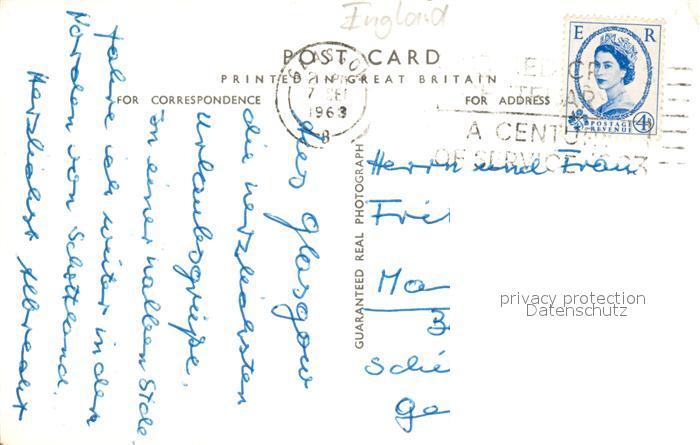 England
POST CARD
PRINTED IN GREAT BRITAIN
FOR CORRESPONDENCE
FOR ADDRESS
E R
POSTAGE
REVENUE
4D
GLASGOW
7 SEP
1963
A CENTURY
OF SERVICE
GUARANTEED REAL PHOTOGRAPH
Aus Glasgow
die herzlichsten
Urlaubsgrüße.
In einer halben Stde.
fahre ich weiter in den
Norden von Schottland.
Herzlichst Albrecht
Herrn und Frau
Fri
Ma
Schi
ge
privacy protection
Datenschutz